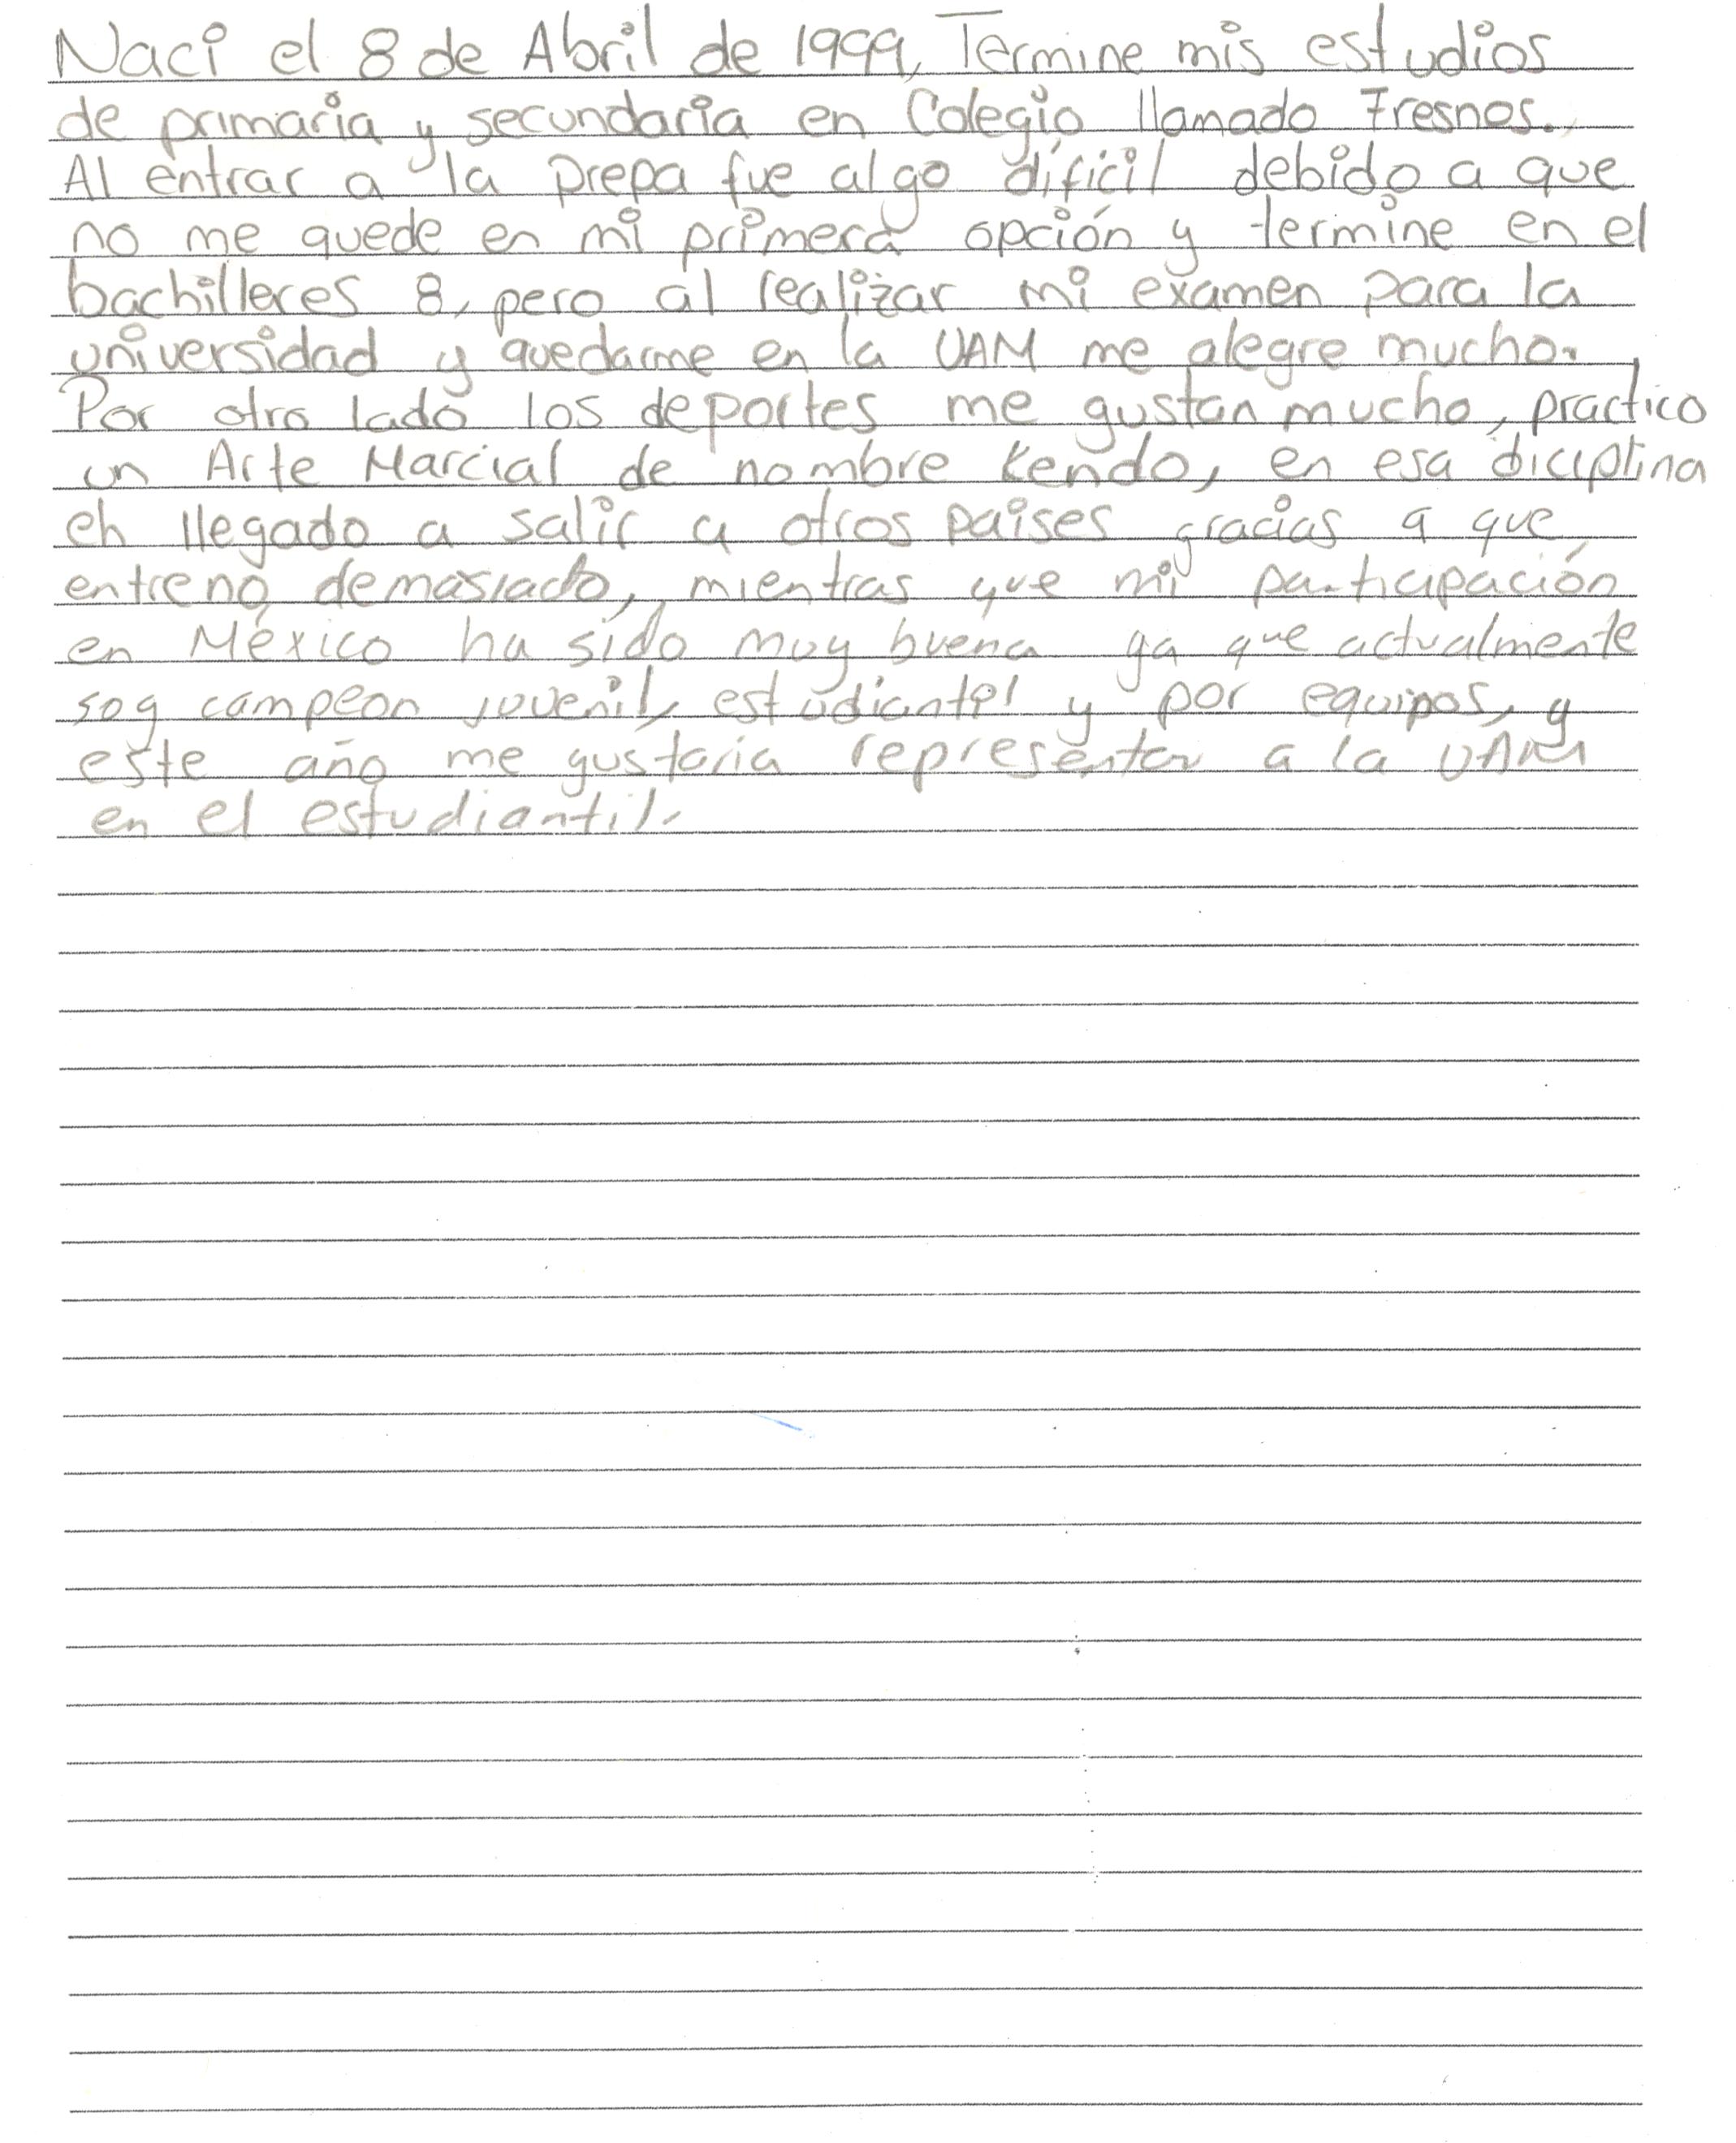 Naci el 8 de Abril de 1999, Termine mis estudios
de primaria y secundaria en Colegio llamado Fresnos.
Al entrar a la prepa fue algo díficil debido a que
no me quede en mi primera opción y termine en el
bachilleres 8, pero al realizar mi examen para la
universidad y quedarme en la UAM me alegre mucho.
Por otro lado los deportes me gustan mucho, practico
un Arte Marcial de nombre Kendo, en esa diciplina
eh llegado a salir a otros paises gracias a que
entreno demasiado, mientras que mi participación
en México ha sido muy buena ya que actualmente
soy campeon juvenil, estudiantil y por equipos, y
este año me gustaria representar a la UAM
en el estudiantil.